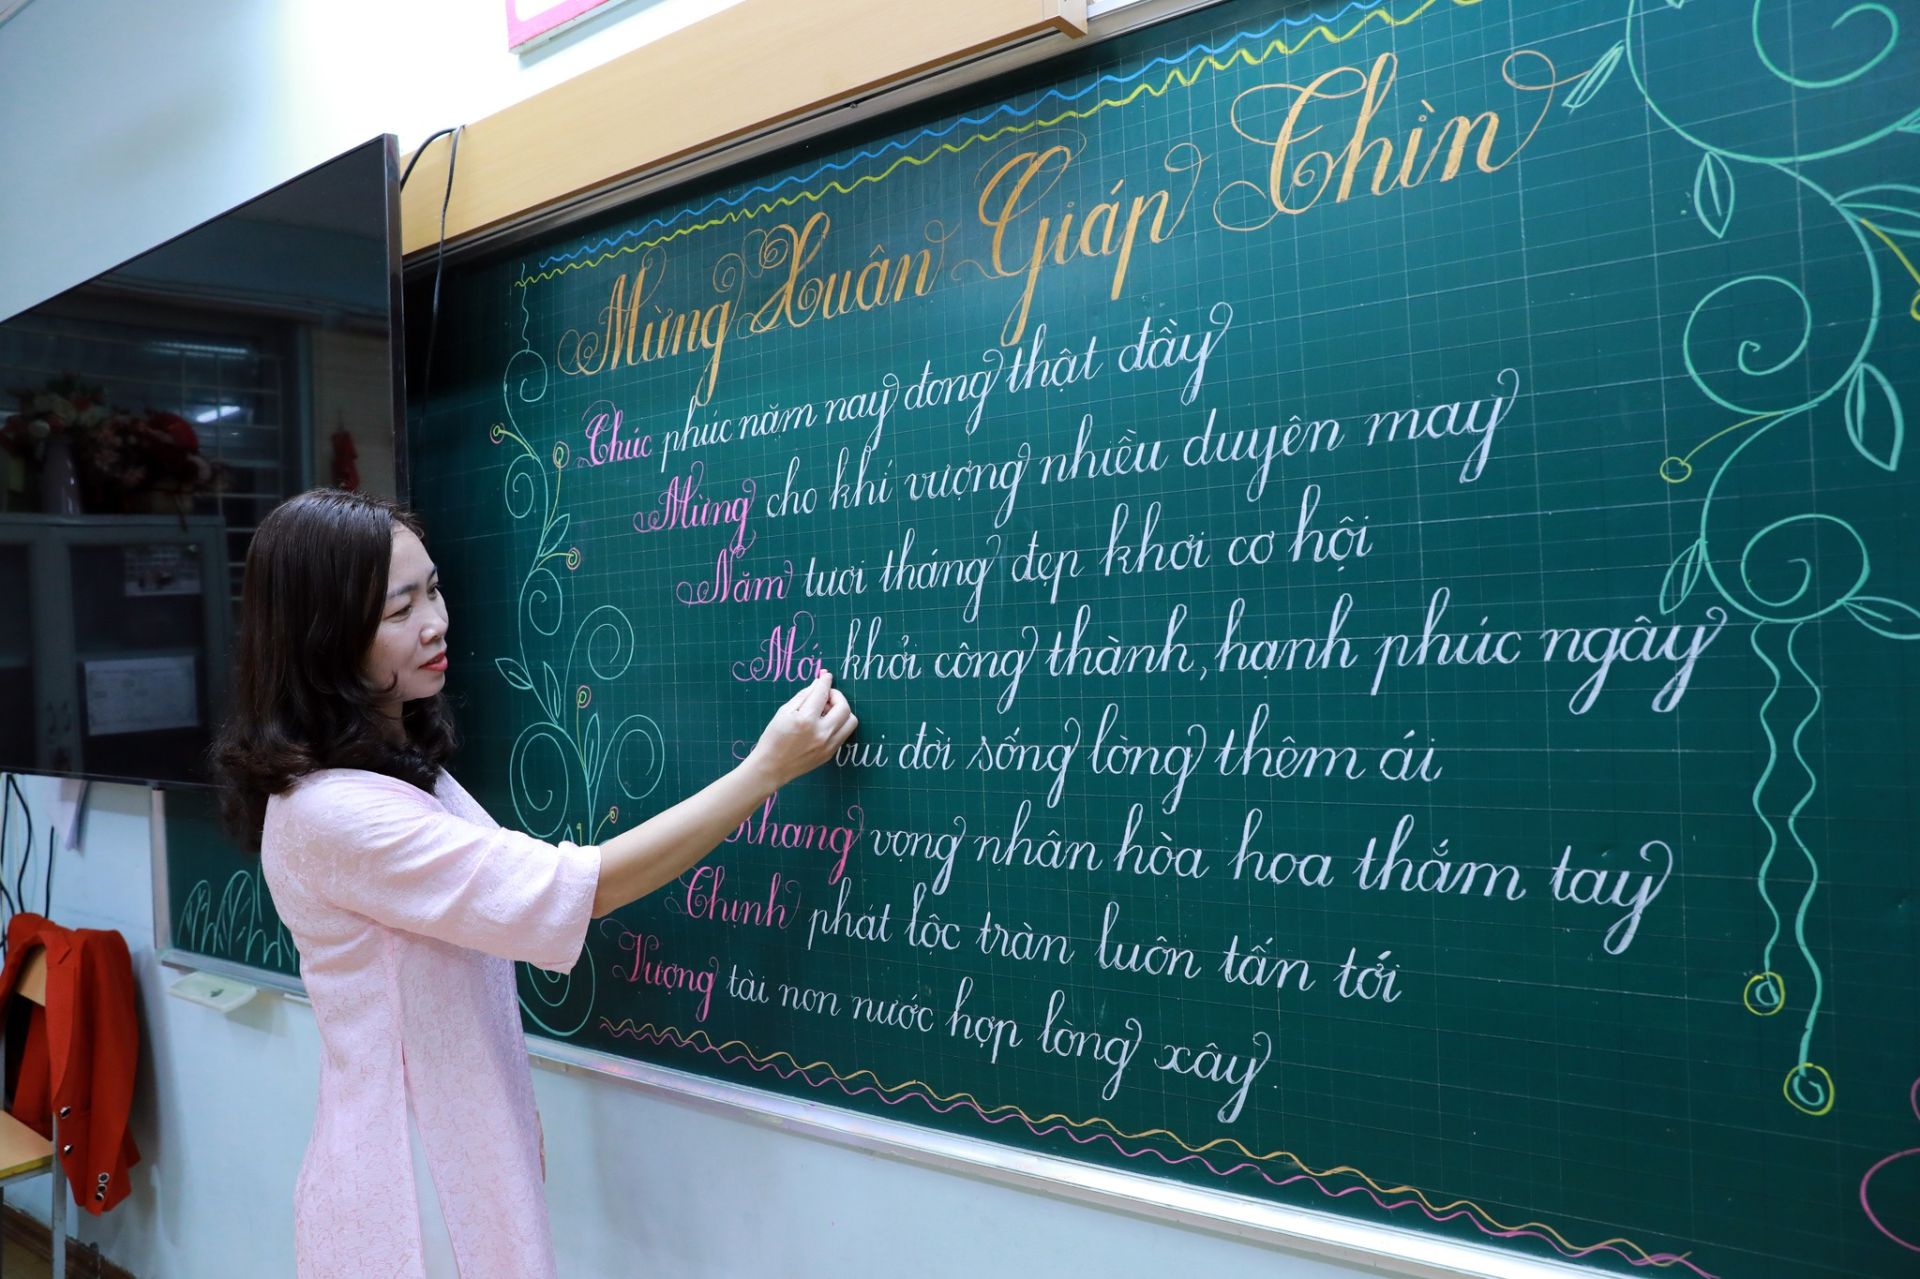 Mừng Xuân Giáp Thìn
Chúc phúc năm nay đong thật đầy
Mừng cho khí vượng nhiều duyên may
Năm tươi tháng đẹp khơi cơ hội
Mới khởi công thành, hạnh phúc ngây
vui đời sống lòng thêm ái
Khang vọng nhân hòa hoa thắm tay
Thịnh phát lộc tràn luôn tấn tới
Vượng tài non nước hợp lòng xây